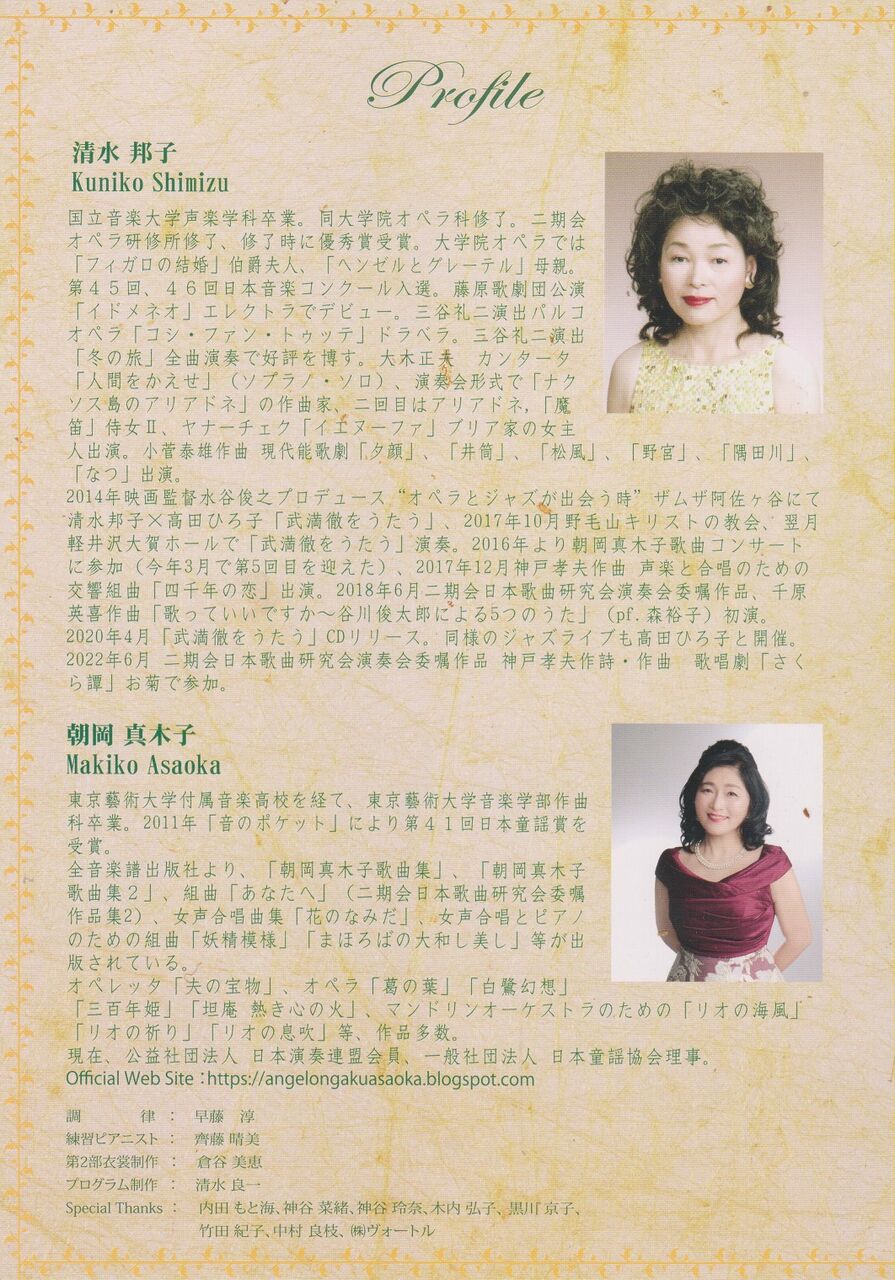 Profile
清水 邦子
Kuniko Shimizu
国立音楽大学声楽学科卒業。同大学院オペラ科修了。二期会
オペラ研修所修了、修了時に優秀賞受賞。大学院オペラでは
「フィガロの結婚」伯爵夫人、「ヘンゼルとグレーテル」母親。
第４５回、４６回日本音楽コンクール入選。藤原歌劇団公演
「イドメネオ」エレクトラでデビュー。三谷礼二演出パルコ
オペラ「コシ・ファン・トゥッテ」ドラベラ。三谷礼二演出
「冬の旅」全曲演奏で好評を博す。大木正夫　カンタータ
「人間をかえせ」（ソプラノ・ソロ）、演奏会形式で「ナク
ソス島のアリアドネ」の作曲家、二回目はアリアドネ,「魔
笛」侍女Ⅱ、ヤナーチェク「イエヌーファ」ブリア家の女主
人出演。小菅泰雄作曲 現代能歌劇「夕顔」、「井筒」、「松風」、「野宮」、「隅田川」、
「なつ」出演。
2014年映画監督水谷俊之プロデュース“オペラとジャズが出会う時”ザムザ阿佐ヶ谷にて
清水邦子×高田ひろ子「武満徹をうたう」、2017年10月野毛山キリストの教会、翌月
軽井沢大賀ホールで「武満徹をうたう」演奏。2016年より朝岡真木子歌曲コンサート
に参加（今年3月で第5回目を迎えた）、2017年12月神戸孝夫作曲 声楽と合唱のための
交響組曲「四千年の恋」出演。2018年6月二期会日本歌曲研究会演奏会委嘱作品、千原
英喜作曲「歌っていいですか～谷川俊太郎による5つのうた」（pf.森裕子）初演。
2020年4月「武満徹をうたう」CDリリース。同様のジャズライブも高田ひろ子と開催。
2022年6月 二期会日本歌曲研究会演奏会委嘱作品 神戸孝夫作詩・作曲　歌唱劇「さく
ら譚」お菊で参加。
朝岡 真木子
Makiko Asaoka
東京藝術大学付属音楽高校を経て、東京藝術大学音楽学部作曲
科卒業。2011年「音のポケット」により第４１回日本童謡賞を
受賞。
全音楽譜出版社より、「朝岡真木子歌曲集」、「朝岡真木子
歌曲集２」、組曲「あなたへ」（二期会日本歌曲研究会委嘱
作品集2）、女声合唱曲集「花のなみだ」、女声合唱とピアノ
のための組曲「妖精模様」「まほろばの大和し美し」等が出
版されている。
オペレッタ「夫の宝物」、オペラ「葛の葉」「白鷺幻想」
「三百年姫」「坦庵 熱き心の火」、マンドリンオーケストラのための「リオの海風」
「リオの祈り」「リオの息吹」等、作品多数。
現在、公益社団法人 日本演奏連盟会員、一般社団法人 日本童謡協会理事。
Official Web Site：https://angelongakuasaoka.blogspot.com
調　　　　律 ：　早藤　淳
練習ピアニスト ：　齊藤 晴美
第2部衣裳制作 ：　倉谷 美恵
プログラム制作 ：　清水 良一
Special Thanks ：　内田 もと海、神谷 菜緒、神谷 玲奈、木内 弘子、黒川 京子、
竹田 紀子、中村 良枝、㈱ヴォートル